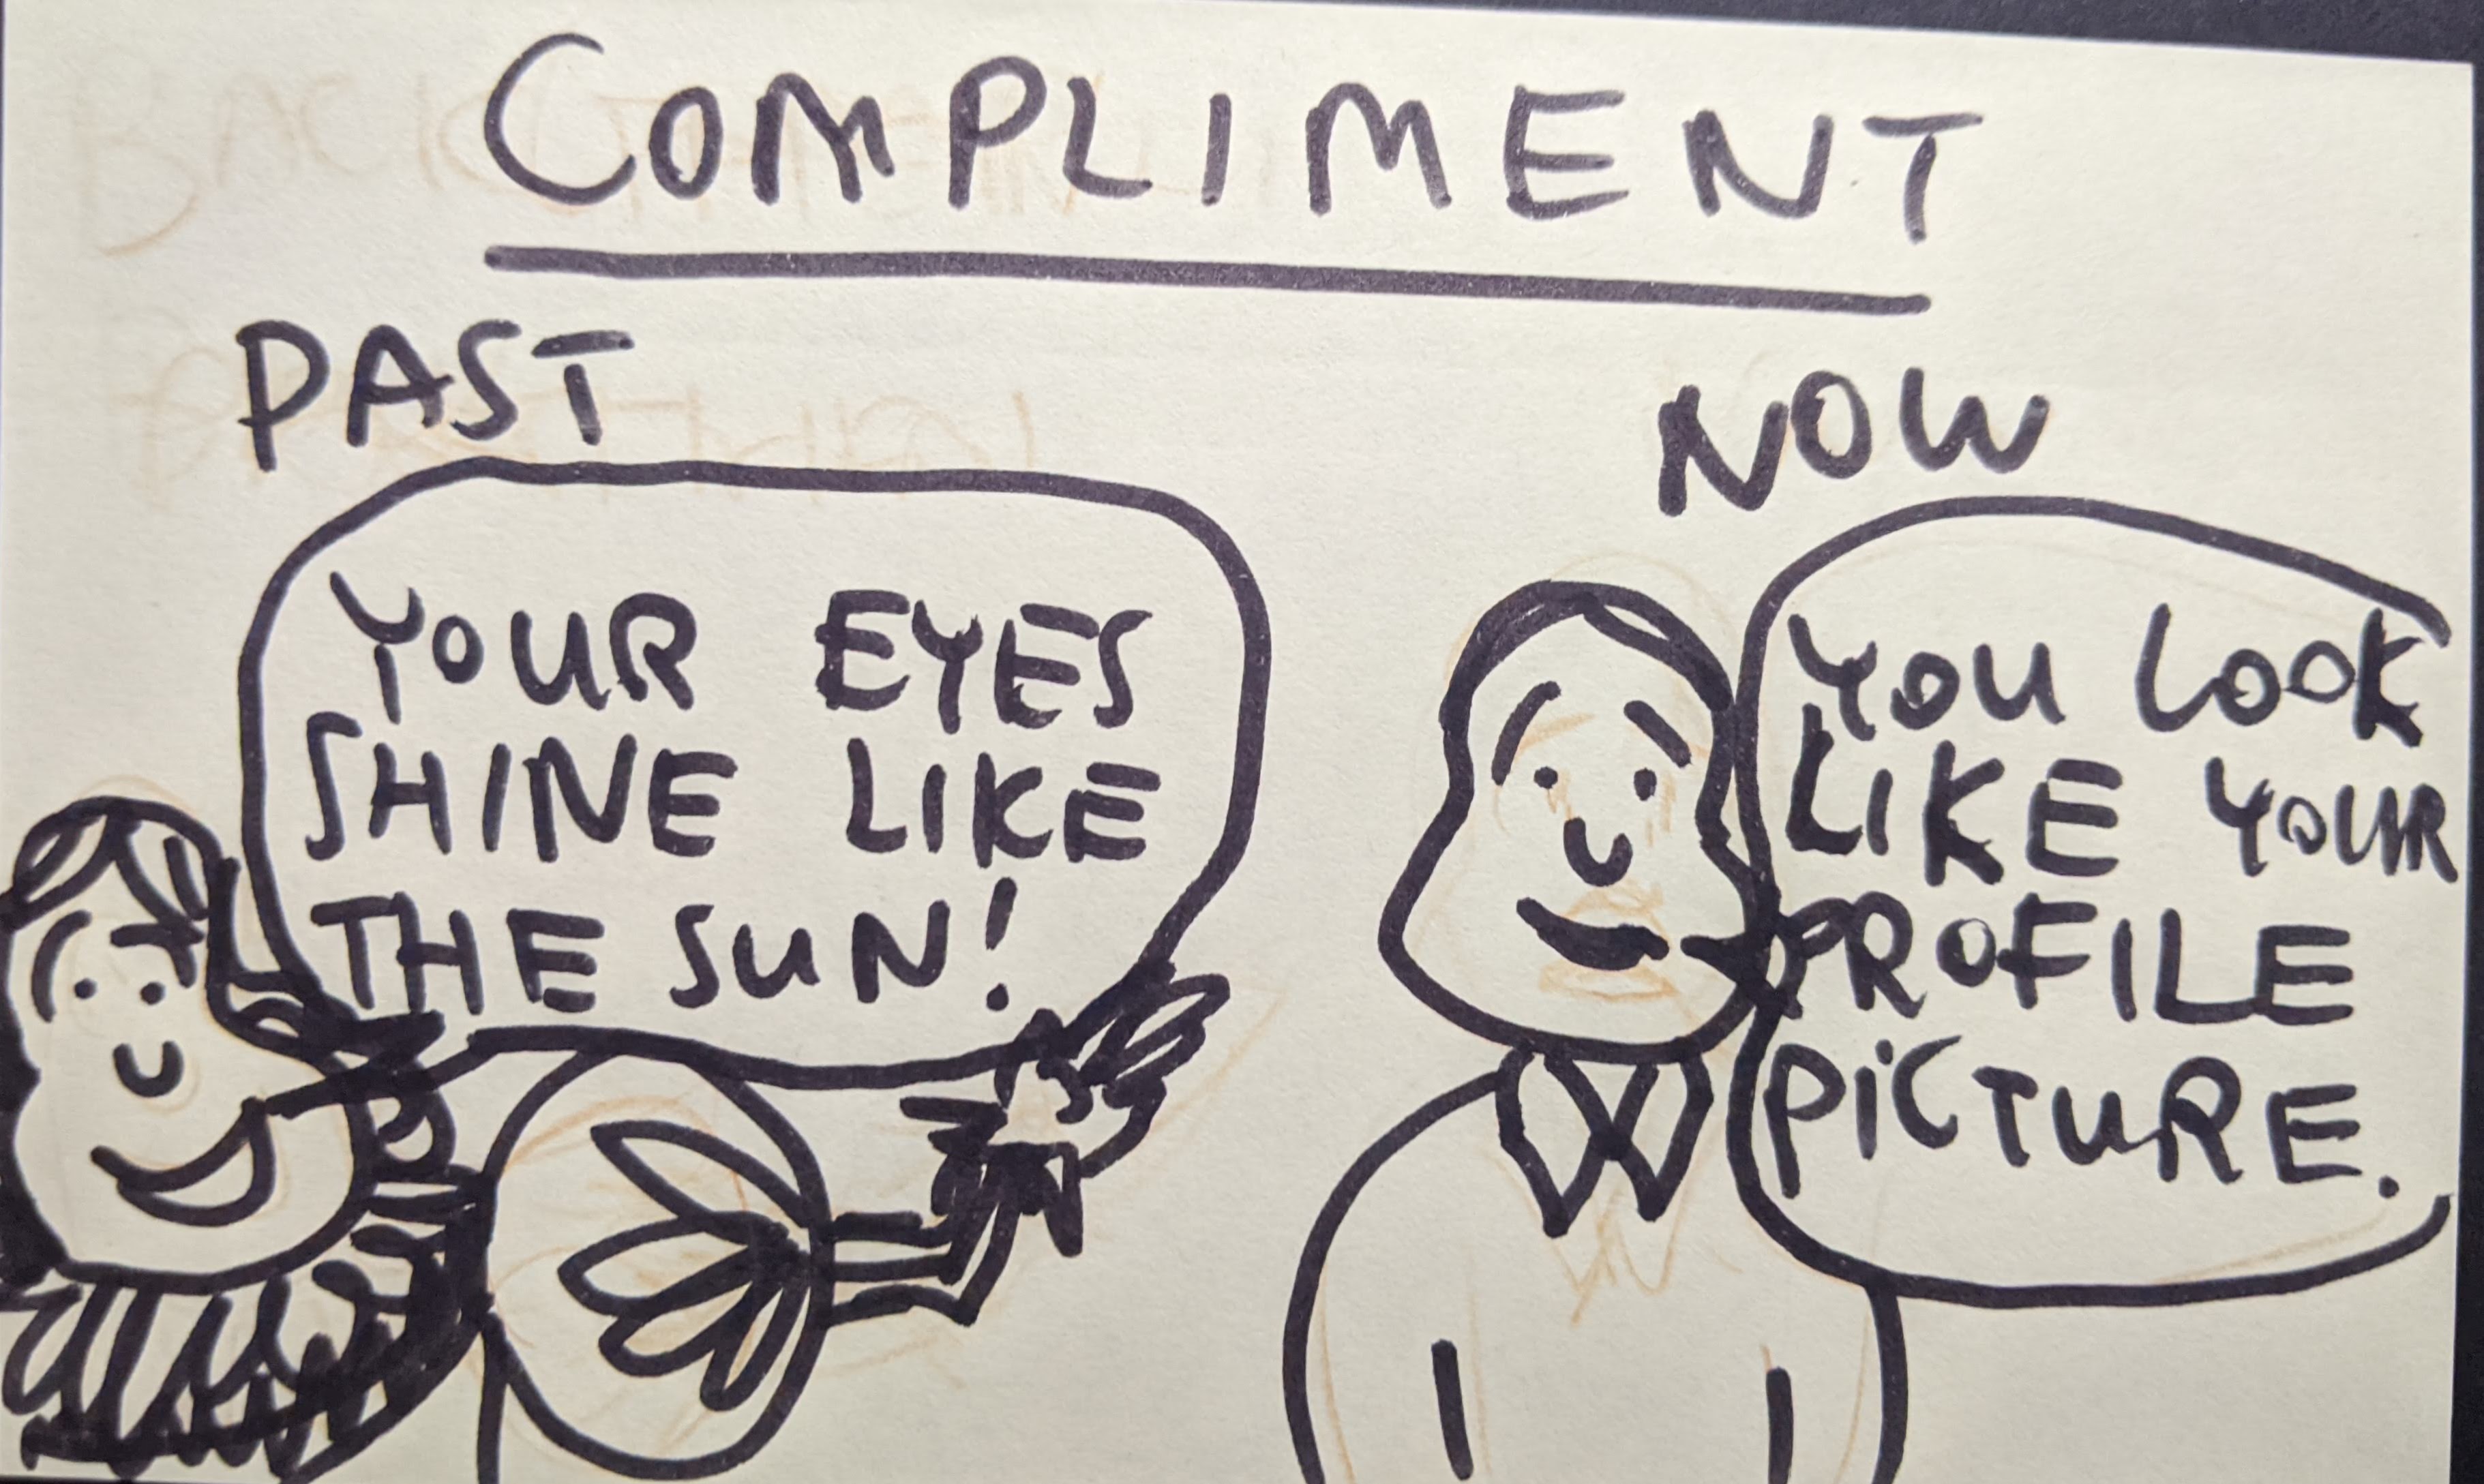 COMPLIMENT
PAST
YOUR EYES
SHINE LIKE
THE SUN!
NOW
YOU LOOK
LIKE YOUR
PROFILE
PICTURE.